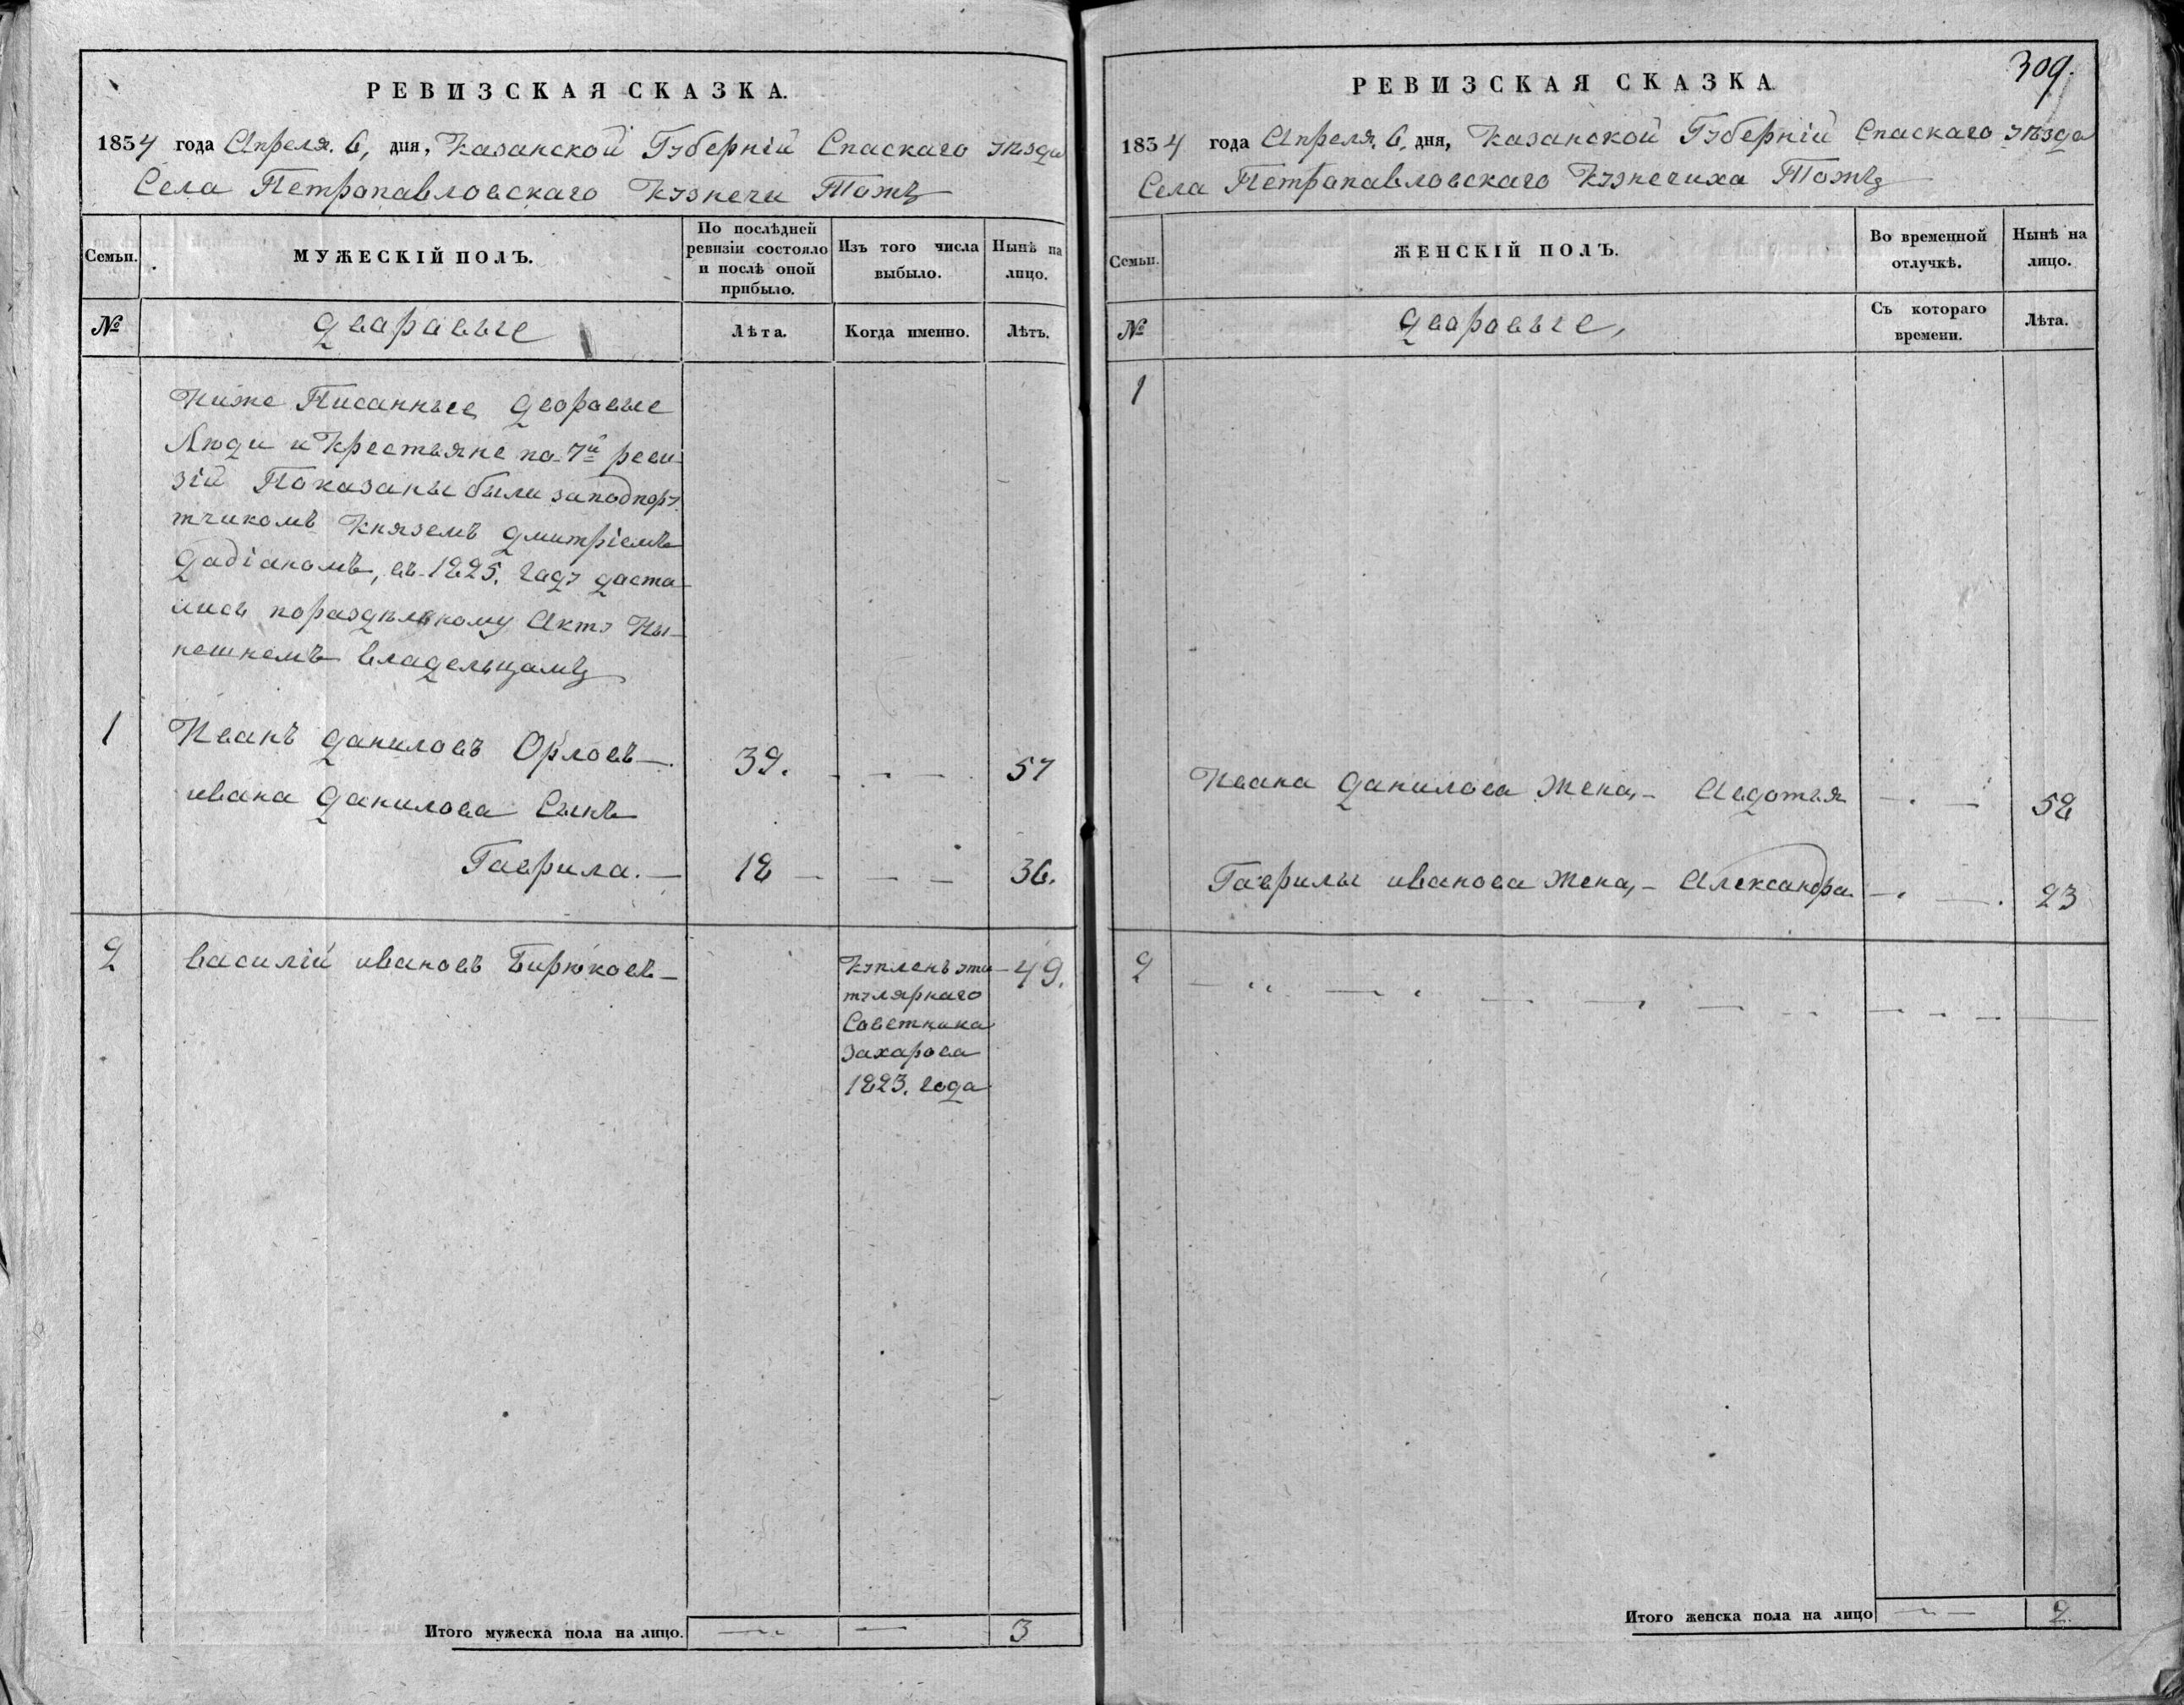 РЕВИЗСКАЯ СКАЗКА.
1834 года Апреля. 6, дня, Казанской Губерніи Спаскаго уѣзда
Села Петрапавловскаго Кузнечи Тожъ
Семьи.
МУЖЕСКІЙ ПОЛЪ.
По послѣдней
ревизіи состояло
и послѣ оной
прибыло.
Изъ того числа
выбыло.
Нынѣ на
лицо.
№
дваравые
Лѣта.
Когда именно.
Лѣтъ.
Ниже Писанные дворовые
Люди и Крестьяне по 7й реви
зіи Показаны были заподпору
тчикомъ Княземъ Дмитріемъ
Дадіаномъ, въ 1825. году доста
лись пораздѣльному Акту Ны-
нешнемъ владельцамъ
1 Иванъ Даниловъ Орловъ — 39. — — 57
ивана Данилова Сынъ
Гаврила. — 18 — — — 36.
2 Василій ивановъ Бирюковъ — Купленъ у ти 49.
тулярнаго
Советника
Захарова
1823. года
Итого мужеска пола на лицо. — — 3
309.
РЕВИЗСКАЯ СКАЗКА.
1834 года Апреля. 6, дня, Казанской Губерніи Спаскаго уѣзда
Села Петрапавловскаго Кузнечиха Тожъ
Семьи.
ЖЕНСКІЙ ПОЛЪ.
Во временной
отлучкѣ.
Нынѣ на
лицо.
№
дворовые,
Съ котораго
времени.
Лѣта.
1
Ивана Данилова Жена, — Авдотья — — 58
Гаврилы иванова Жена, — Александра — — 23
2 — — — — — —
Итого женска пола на лицо — — 2.